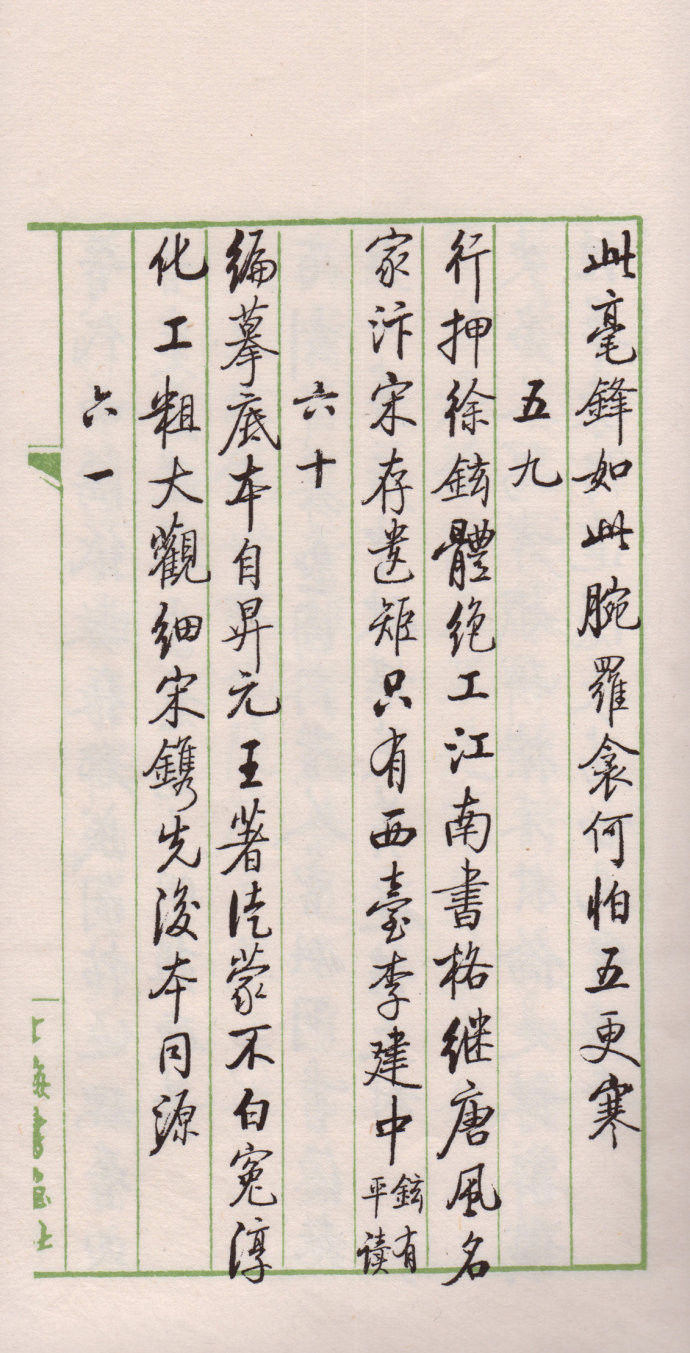 此毫鋒如此腕羅衾何怕五更寒
五九
行押徐鉉體絶工江南書格继唐風名
家汴宋存遺矩只有西臺李建中鉉有
平读
六十
編摹底本自昇元王著徒蒙不白冤淳
化工粗大觀细宋鐫先後本同源
六一
上海書画社